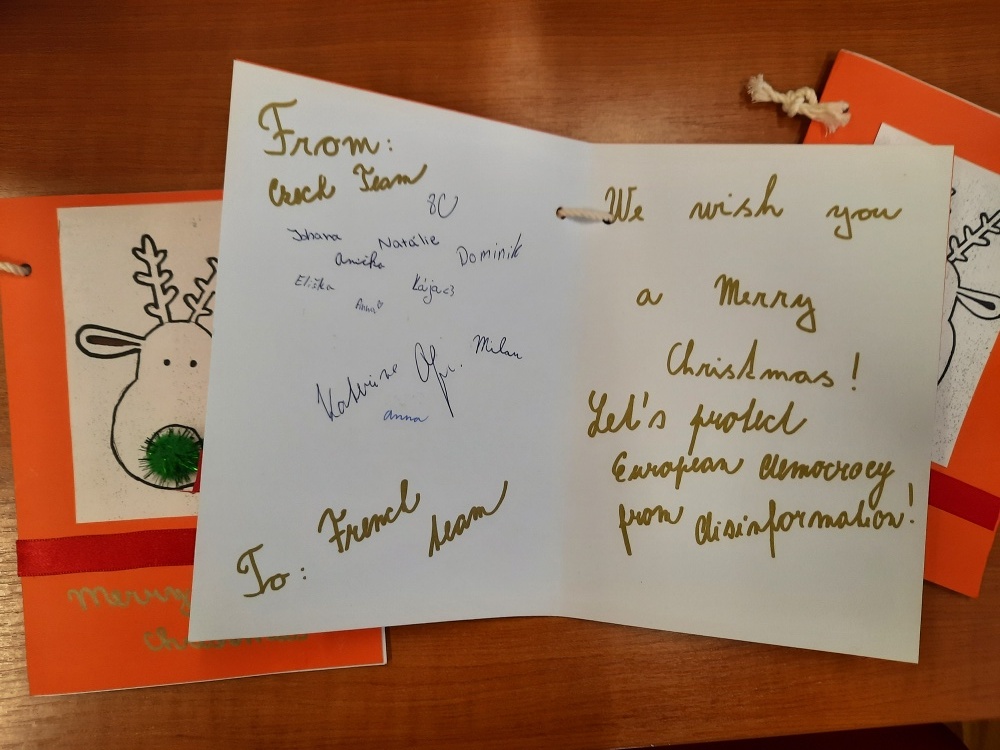 From:
Czech Team
8C
Johana Natálie
Anička Dominik
Eliška Kája <3
Anna ♡
Kateřina Milan
anna
To: French
team
We wish you
a Merry
Christmas!
Let's protect
European democracy
from disinformation!
Merry
Christmas